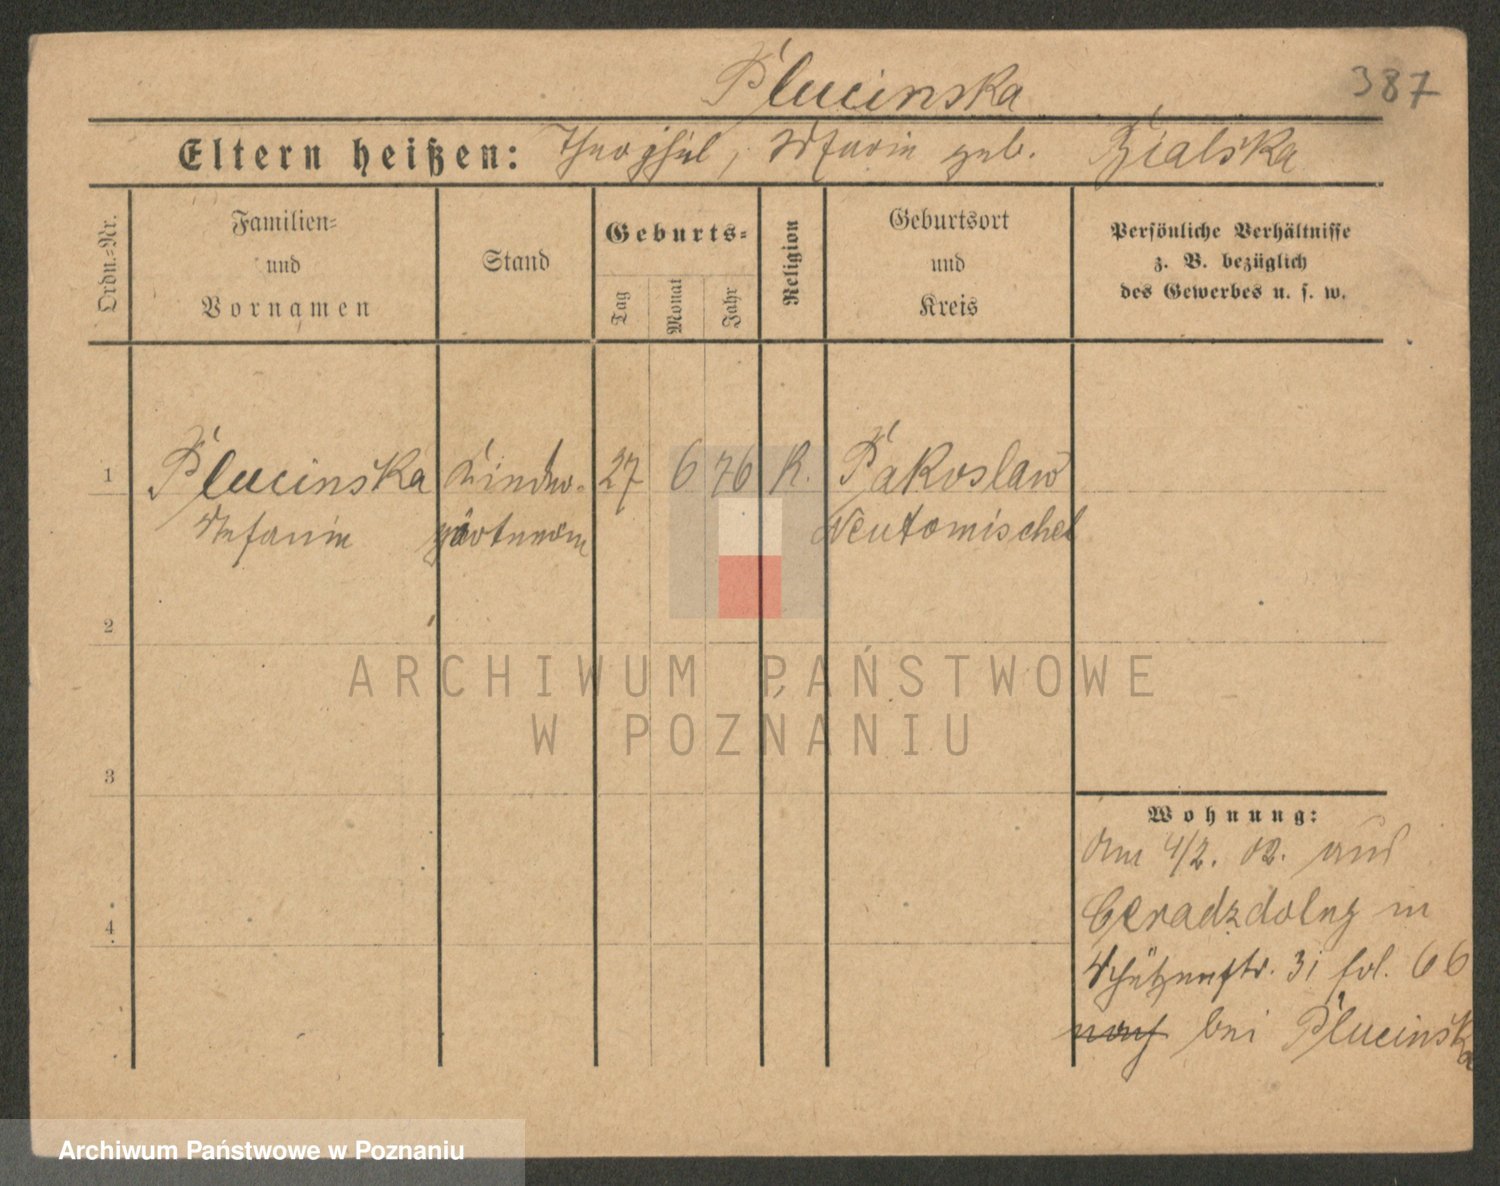 Plucinska
387
Eltern heißen: Theophil, Marie geb. Bialska
Ordn.-Nr.
Familien-
und
Vornamen
Stand
Geburts-
Tag
Monat
Jahr
Religion
Geburtsort
und
Kreis
Persönliche Verhältnisse
z. B. bezüglich
des Gewerbes u. s. w.
1 Plucinska Kinder- 27 6 76 K. Pakoslaw
Stefanie gärtnerin Neutomischel
2
3
4
Wohnung:
Am 4/2. 02. aus
Ceradzdolny in
Schützenstr. 31 fol. 66
bei Plucinska
ARCHIWUM PAŃSTWOWE
W POZNANIU
Archiwum Państwowe w Poznaniu